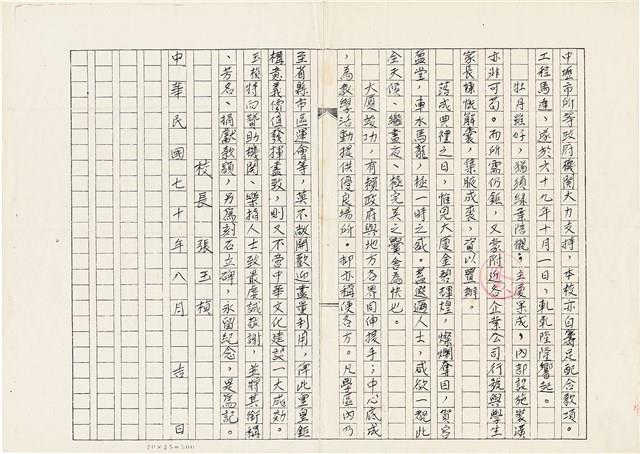 中壢市所等政府機關大力支持，本校亦自籌足配合款項。
工程馬進，遂於六十九年十月一日，軋軋隆隆響起。
牡丹雖好，猶須綠葉陪襯。主廈果成，內部設施裝潢
亦非可苟。而所需仍鉅，又蒙附近各企業公司行號與學生
家長慷慨解囊，集腋成裘，資以置辦。
落成典禮之日，惟見大廈金碧輝煌，燦爛奪目，賀客
盈堂，車水馬龍，極一時之盛。蓋遐邇人士，咸欲一睹此
全天候、繼晝夜、極完美之黌舍為快也。
大廈竣功，有賴政府與地方各界同伸援手；中心底成
，為教學活動提供優良場所。却亦稱便各方。凡學區內乃
至省縣市區運會等，莫不敞開歡迎盡量利用，俾此里皇鉅
構意義價值發揮盡致，則又不啻中華文化建設一大成效。
玉楨特向贊助機關、樂捐人士致最虔誠敬謝，並將其銜稱
、芳名、捐獻款額，另為刻石立碑，永留紀念，是為記。
校長 張玉楨
中華民國七十年八月 吉 日
20×25=500